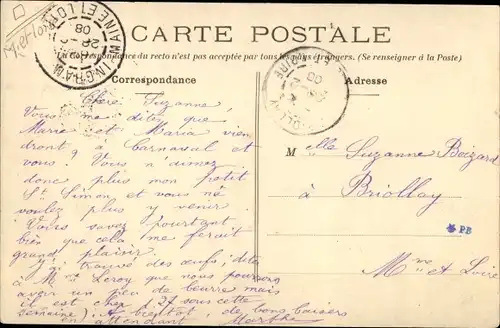 CARTE POSTALE
La Correspondance du recto n'est pas acceptée par tous les pays étrangers. (Se renseigner à la Poste)
Correspondance
Adresse
INGRANDES
MAINE ET LOIRE
08
Chère Suzanne,
Vous me dites que
Marie et Maria vien
dront à Carnaval et
vous ! Vous n'aimez
donc plus mon petit
St Simon et vous ne
voulez plus y venir.
Vous savez pourtant
bien que cela me ferait
grand plaisir.
J'ai trouvé des œufs, dites
à Mme Leroy que nous pourrons
avoir un peu de beurre mais
il est cher, 27 sous cette
semaine). A bientôt, de bons baisers
en attendant Marthe
Melle Suzanne Boizard
à Briollay
PB
Mne et Loire